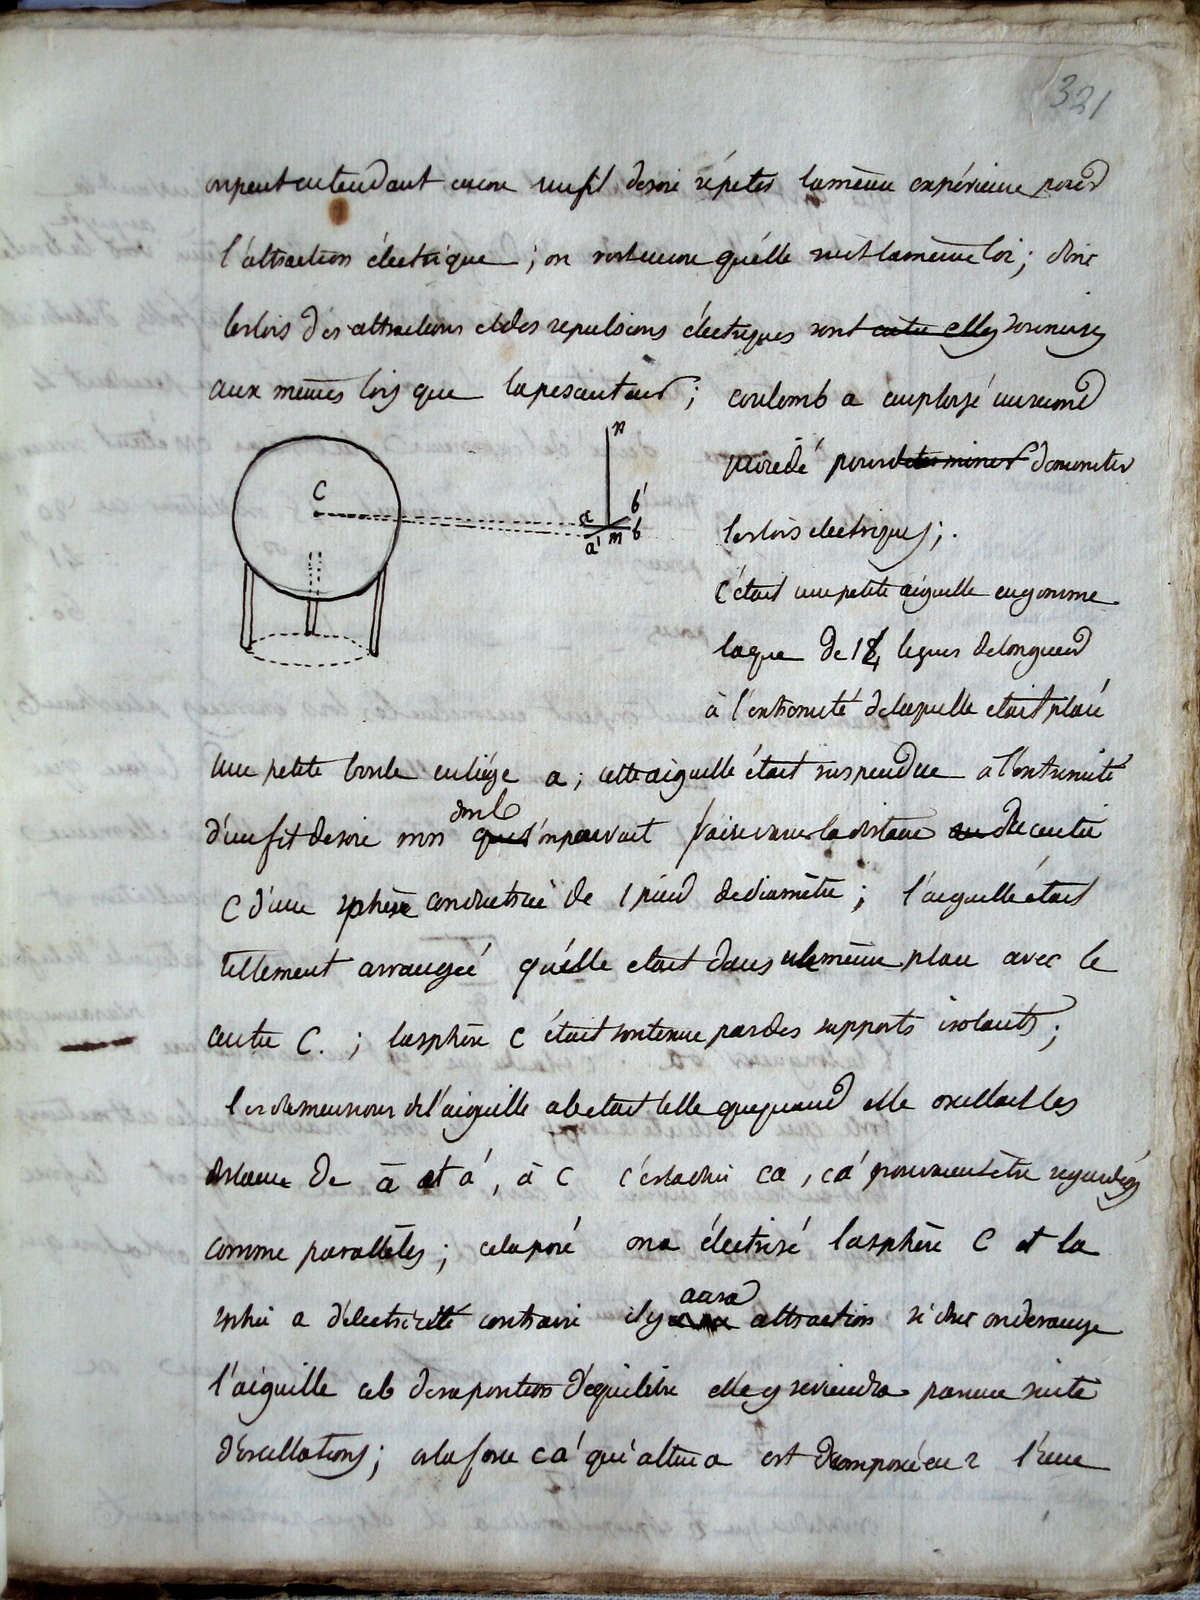 321
on peut en tendant encore un fil de soie répéter la même expérience pour
l'attraction électrique ; on voit encore quélle suit la même loi ; donc
les lois des attractions et des repulsions électriques sont entre elles soumises
aux mêmes lois que la pesanteur ; coulomb a employé un second
C
n
a
b'
a'
m
b
procédé pour determiner demontrer
les lois electriques ; .
C'étoit une petite aiguille en gomme
laque de 14 lignes de longueur
à l'extremité de laquelle etait placé
une petite boule en liége a ; cette aiguille était suspendue a l'extrémité
d'un fil de soie mn dont l'on pouvait faire varier la distance au du centre
C d'une sphère conductrice de 1 pied de diamètre ; l'aiguille était
tellement arrangée quélle etait dans le même plan avec le
centre C. ; la sphère C était soutenue par des supports isolants ;
les dimensions de l'aiguille ab etait telle que quand elle oscillait les
distance de a et a', à C c'est a dire Ca, Ca' pouvaient être regardés
comme parallèles ; cela posé on a électrisé la sphère C et la
sphère a d'électricité contraire il y aura attraction si donc on derange
l'aiguille ab de sa position d'équilibre elle y reviendra par une suite
d'oscillations ; or la force Ca' qui attire a est decomposée en 2 l'une